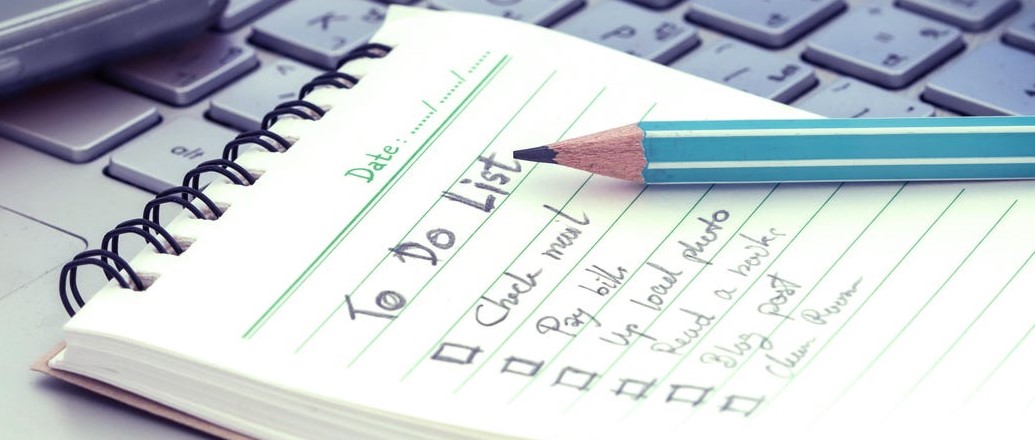 Date: ....../....../......
To Do List
Check mail
Pay bills
Up load photo
Read a books
Blog post
clean Room